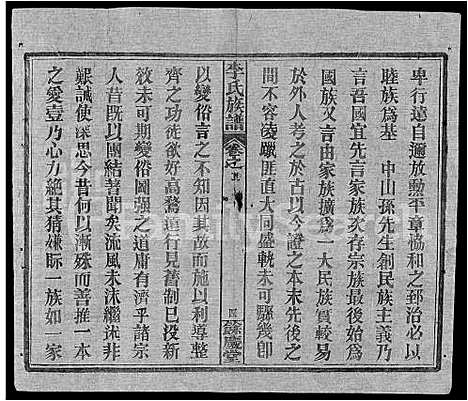 卑行遠自邇放勳平章協和之郅治必以
睦族為基　中山孫先生創民族主義乃
言吾國宜先言家族次存宗族最後始為
國族又言由家族擴為一大民族實較易
於外人考之於古以今證之本末先後之
間不容淩躐匪直大同盛軌未可驟幾卽
李氏族譜
卷之首
四
餘慶堂
以變俗言之不知因其故而施以利導整
齊之功徒欲好高騖遠行見舊制已沒新
效未可期變俗圖强之道庸有濟乎諸宗
人昔既以團結著聞矣流風未沫繼述非
艱誠使深思今昔何以漸殊而善推一本
之愛壹乃心力絕其猜嫌眎一族如一家